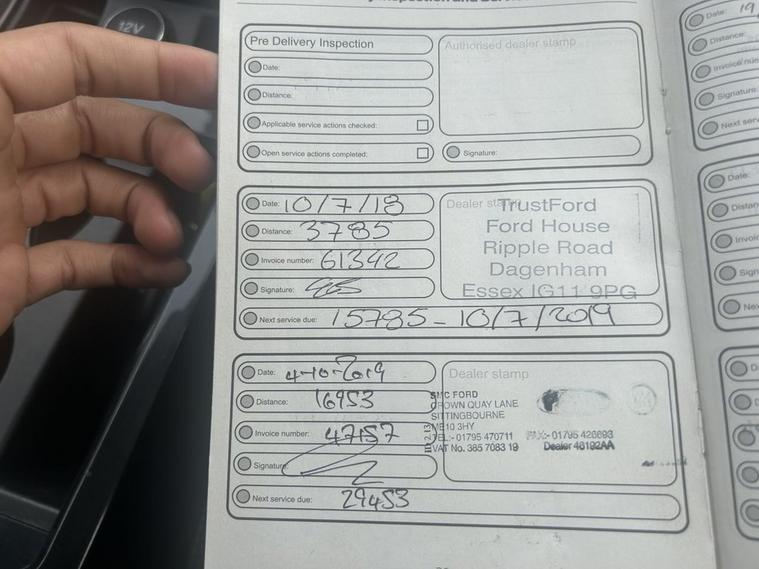 12V
Pre Delivery Inspection
Date:
Distance:
Applicable service actions checked:
Open service actions completed:
Authorised dealer stamp
Signature:
Date: 10/7/18
Distance: 3785
Invoice number: 61342
Signature:
Next service due: 15785 - 10/7/2019
Dealer stamp
TrustFord
Ford House
Ripple Road
Dagenham
Essex IG11 9PG
Date: 4-10-2019
Distance: 16953
Invoice number: 47157
Signature:
Next service due: 29453
Dealer stamp
SMC FORD
CROWN QUAY LANE
SITTINGBOURNE
ME10 3HY
TEL:- 01795 470711 FAX:- 01795 428693
VAT No. 385 7083 19 Dealer 46192AA
Date: 19
Distance:
Invoice num
Signature:
Next serv
Date:
Distan
Invoic
Sign
Nex